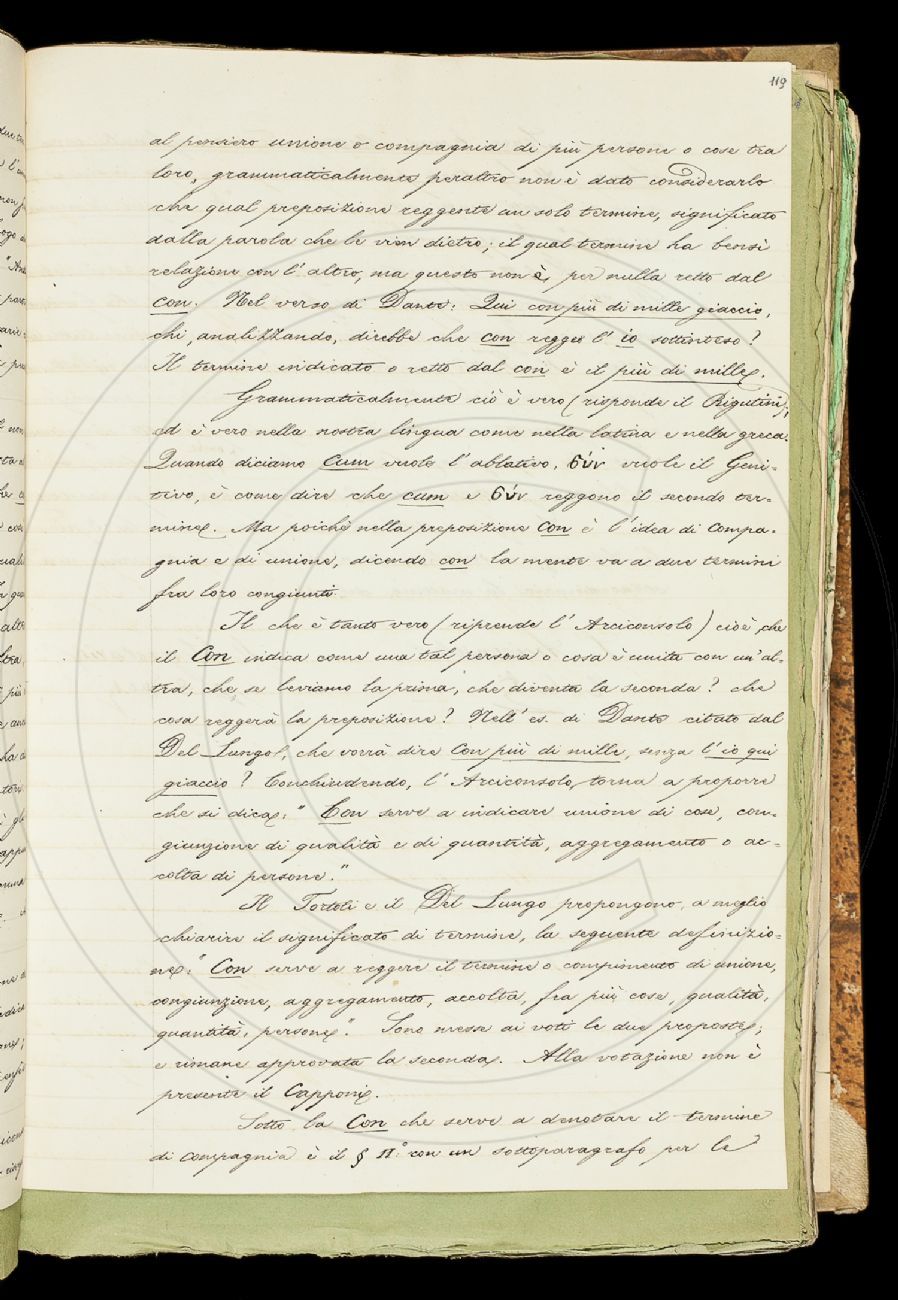 119
al pensiero unione o compagnia di più persone o cose tra
loro, grammaticalmente peraltro non è dato considerarlo
che qual preposizione reggente un solo termine, significato
dalla parola che le vien dietro; il qual termine ha bensì
relazione con l'altro, ma questo non è per nulla retto dal
con. Nel verso di Dante: Qui con più di mille giaccio,
chi, analizzando, direbbe che con regge l'io sottinteso?
Il termine indicato o retto dal con è il più di mille.
Grammaticalmente ciò è vero (risponde il Rigutini),
ed è vero nella nostra lingua come nella latina e nella greca.
Quando diciamo Cum vuole l'ablativo, σύν vuole il Geni-
tivo, è come dire che cum e σύν reggono il secondo ter-
mine. Ma poichè nella preposizione Con è l'idea di Compa-
gnia e di unione, dicendo con la mente va a due termini
fra loro congiunti.
Il che è tanto vero (riprende l'Arciconsolo) cioè che
il Con indica come una tal persona o cosa è unita con un'al-
tra, che se leviamo la prima, che diventa la seconda? che
cosa reggerà la preposizione? Nell'es. di Dante citato dal
Del Lungo, che vorrà dire Con più di mille, senza l'io qui
giaccio? Conchiudendo, l'Arciconsolo torna a proporre
che si dica: "Con serve a indicare unione di cose, con-
giunzione di qualità e di quantità, aggregamento o ac-
colta di persone."
Il Tortoli e il Del Lungo propongono, a meglio
chiarire il significato di termine, la seguente definizio-
ne: "Con serve a reggere il termine o compimento di unione,
congiunzione, aggregamento, accolta, fra più cose, qualità,
quantità, persone". Sono messe ai voti le due proposte;
e rimane approvata la seconda. Alla votazione non è
presente il Capponi.
Sotto la Con che serve a denotare il termine
di compagnia è il § II° con un sottoparagrafo per le